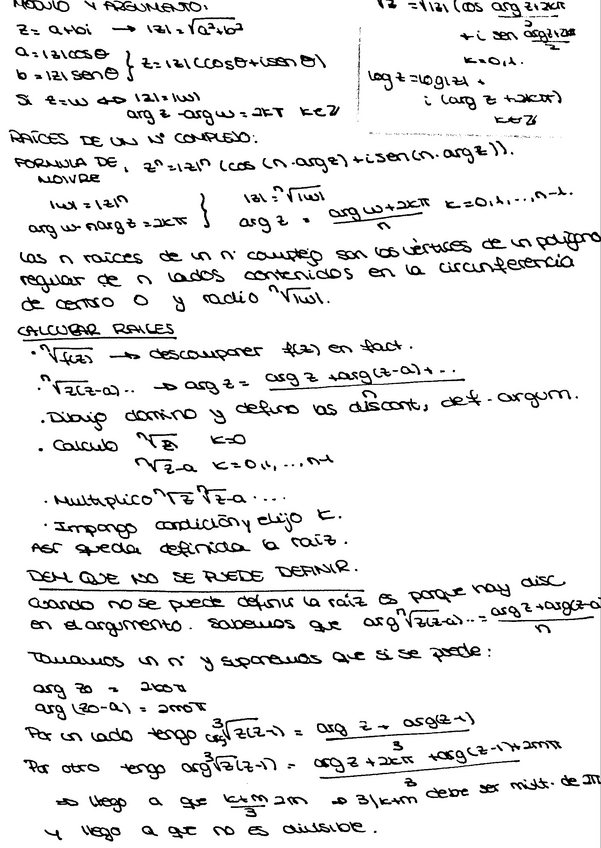 MÓDULO Y ARGUMENTO:
z = a+bi → |z| = √a²+b²
a = |z| cos θ
b = |z| sen θ } z = |z| (cos θ + i sen θ)
Si z = w ⇔ |z| = |w|
arg z - arg w = 2kπ k∈Z
√z = √|z| (cos arg z + 2kπ
+ i sen arg z + 2kπ / 2
k = 0,1.
log z = log|z| +
i (arg z + 2kπ)
k∈Z
RAÍCES DE UN Nº COMPLEJO:
FORMULA DE MOIVRE, zⁿ = |z|ⁿ (cos (n·arg z) + i sen (n·arg z)).
|w| = |z|ⁿ
arg w - n arg z = 2kπ } |z| = ⁿ√|w|
arg z = arg w + 2kπ / n k = 0,1,...,n-1.
Las n raíces de un nº complejo son los vértices de un polígono
regular de n lados contenidos en la circunferencia
de centro 0 y radio ⁿ√|w|.
CALCULAR RAICES
· ⁿ√f(z) → descomponer f(z) en fact.
· ⁿ√z(z-a).. → arg z = arg z + arg(z-a) + ... / n
· Dibujo dominio y defino las discont, def. argum.
· Calculo ⁿ√z k=0
ⁿ√z-a k=0,1,...,n-1
· Multiplico ⁿ√z ⁿ√z-a ....
· Impongo condición y elijo k.
Así queda definida la raíz.
DEM QUE NO SE PUEDE DEFINIR.
Cuando no se puede definir la raíz es porque hay disc
en el argumento. Sabemos que arg ⁿ√z(z-a).. = arg z + arg(z-a / n
Tomamos un nº y suponemos que si se puede:
arg z0 =
arg (z0-a) =
Por un lado tengo arg ³√z(z-1) = arg z + arg(z-1) / 3
Por otro tengo arg ³√z(z-1) = arg z + 2kπ + arg(z-1) + 2mπ / 3
⇒ llego a que k+m / 3 2π ⇒ 3/k+m debe ser múlt. de 2π
y llego a que no es divisible.